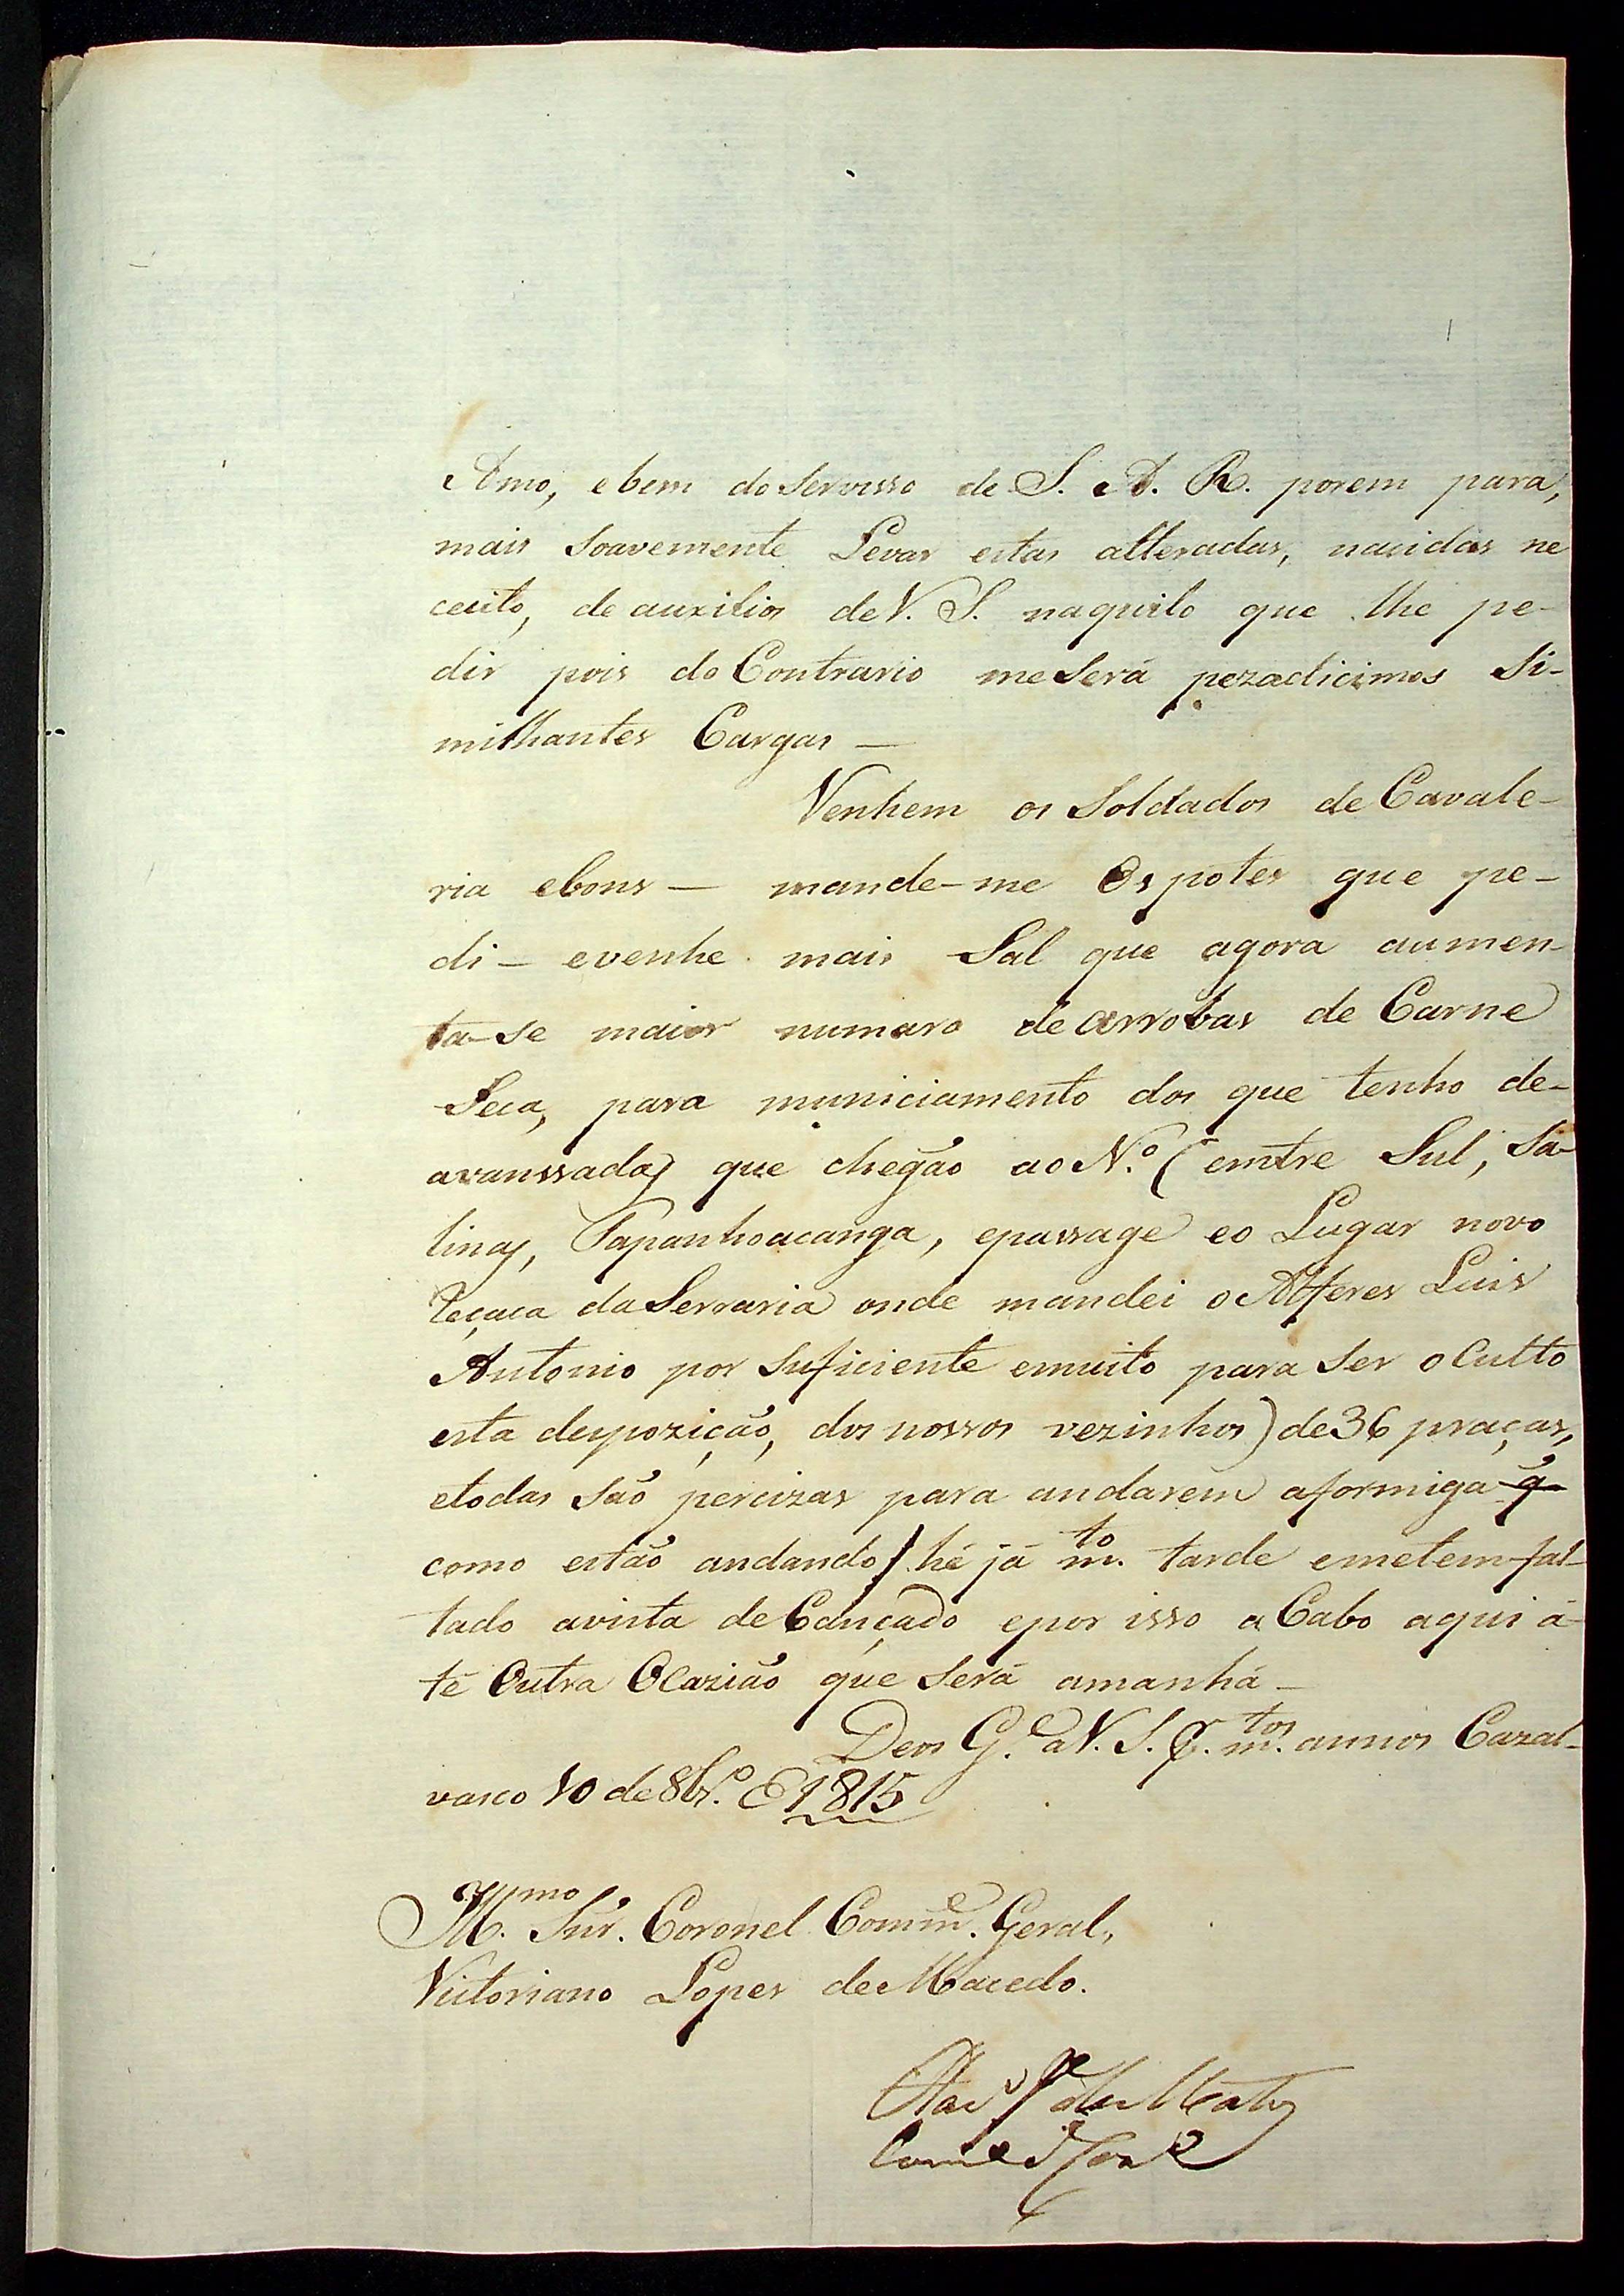 Amo, e bem do Servisso de S. A. R. porem para,
mais Soavemente Levar estas alteradas, nacidas ne
cecito, de auxilios de V. S. naquilo que lhe pe-
dir pois do Contrario me Será pezadicimos Si-
milhantes Cargas —
Venhem os Soldados de Cavale-
ria e bons — mande-me Os potes que pe-
di — e venhe mais Sal que agora aumen-
ta-se maior numaro de arrobas de Carne
Seca, para municiamento dos que tenho de-
avanssadas que chegão ao N.º (emtre Sul, Sa-
linas, Papanhoacanga, e passage e o Lugar novo
da Serraria onde mandei o Alferes Luis
Antonio por Suficiente e muito para Ser oculto
esta despozição, dos nossos vezinhos) de 36 praças,
e todas São percizas para andarem a formiga
como estão andando / hé já m.to tarde e me tem fal-
tado a vista de Cançado e por isso a Cabo aqui á-
té Outra Ocazião que Será amanhá —
Deos G.e a V. S. P. m.tos annos Cazal-
vasco 10 de 8br.º E 1815
Ill.mo Snr. Coronel Comm.e Geral,
Victoriano Lopes de Macedo.